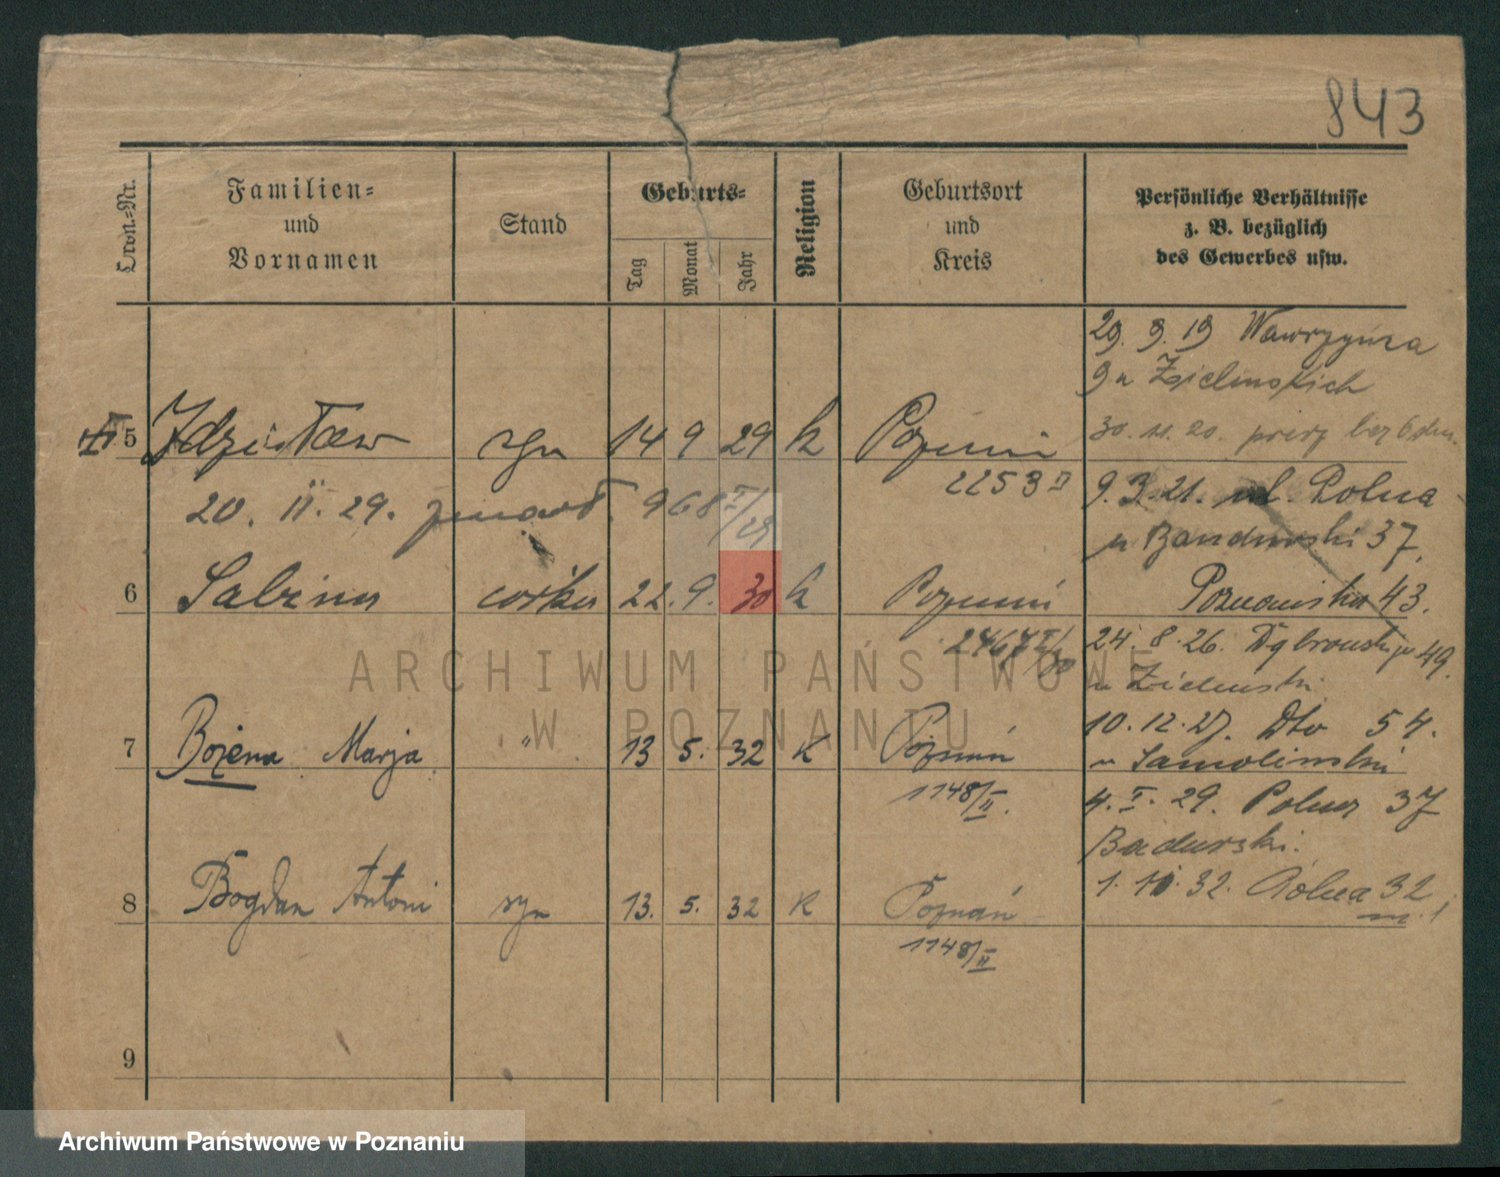 843
Ordn.-Nr.
Familien-
und
Vornamen
Stand
Geburts-
Tag
Monat
Jahr
Religion
Geburtsort
und
Kreis
Persönliche Verhältnisse
z. B. bezüglich
des Gewerbes usw.
29. 9. 19 Wawrzyńca
9 u Zielinskich
5 Zdzisław syn 14 9 29 k Poznań
30. 11. 20.
2253 II
20. II. 29. 968 I/29
9. 3. 21. ul. Polna
u Bandurski 37.
6 Sabina córka 22. 9. 30 k Poznań
Poznańska 43.
2467 II/30
24. 8. 26. Dąbrowskiego 49.
u Zielinski
7 Bożena Marja " 13 5. 32 K Poznań
10. 12. 27. Dto 54.
u Samolinski
1148/II.
4. I. 29. Polna 37
Badurski.
8 Bogdan Antoni syn 13. 5. 32 K Poznań
1. 10. 32. Polna 32
m. 1
1148/II
9
ARCHIWUM PAŃSTWOWE
W POZNANIU
Archiwum Państwowe w Poznaniu